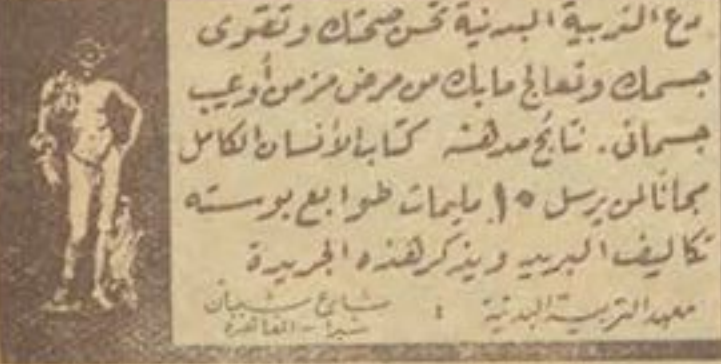 دع التربية البدنية تحسن صحتك وتقوى
جسمك وتعالج مابك من مرض مزمن أو عيب
جسمانى. نتائج مدهشه كتاب الأنسان الكامل
مجانا لمن يرسل ١٠ مليمات طوابع بوسته
تكاليف البريد ويذكر هذه الجريدة
معهد التربية البدنية : شارع شيبان
شبرا - القاهرة